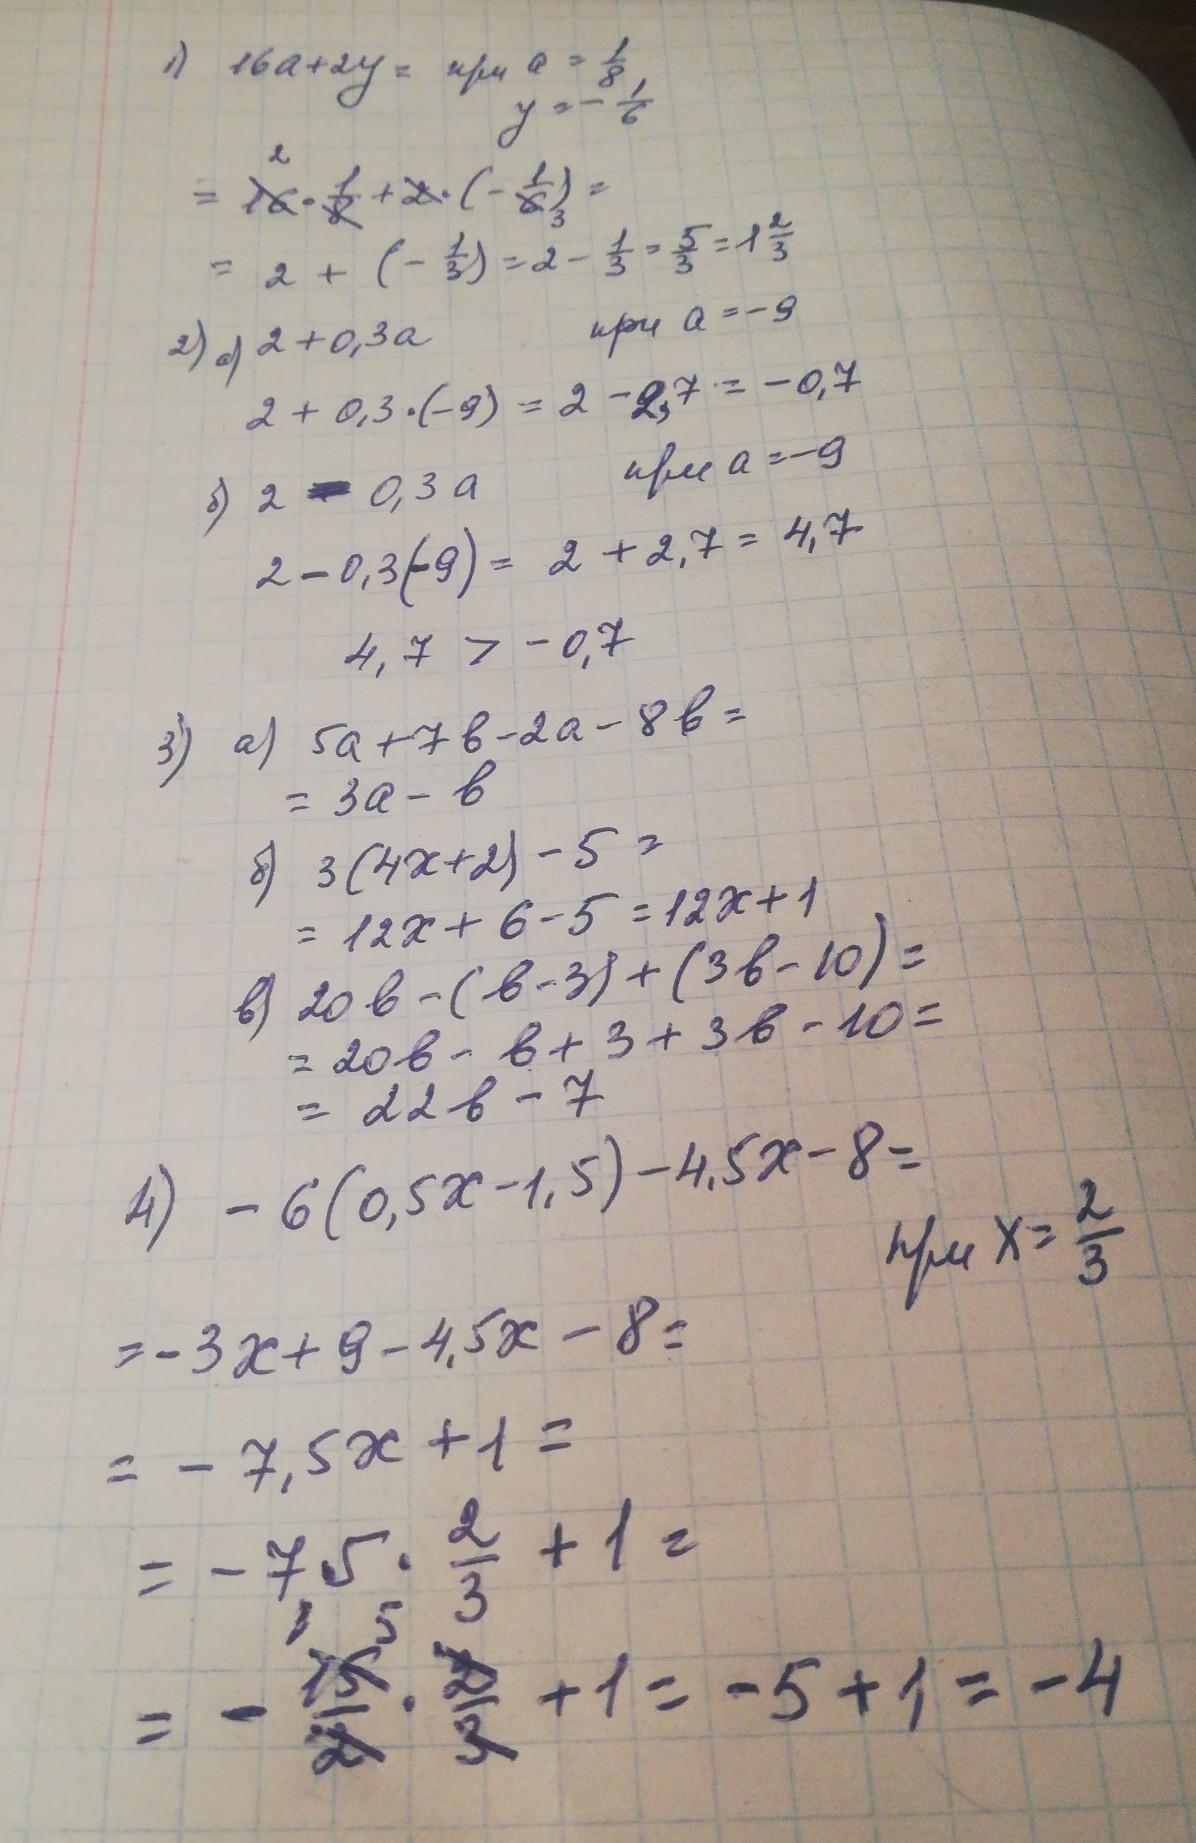 1) 16a+2y= при a = 1/8
y = - 1/6
2
= 16 · 1/8 + 2 · (- 1/6) =
3
= 2 + (- 1/3) = 2 - 1/3 = 5/3 = 1 2/3
2) а) 2+0,3a при a = -9
2 + 0,3·(-9) = 2 - 2,7 = -0,7
б) 2 - 0,3a при a = -9
2 - 0,3(-9) = 2 + 2,7 = 4,7
4,7 > -0,7
3) а) 5a+7b-2a-8b=
= 3a - b
б) 3(4x+2) - 5 =
= 12x + 6 - 5 = 12x + 1
в) 20b - (b-3) + (3b-10) =
= 20b - b + 3 + 3b - 10 =
= 22b - 7
4) - 6(0,5x-1,5) - 4,5x - 8 =
при x = 2/3
= - 3x + 9 - 4,5x - 8 =
= - 7,5x + 1 =
= - 7,5 · 2/3 + 1 =
5
= - 15/2 · 2/3 + 1 = -5 + 1 = -4